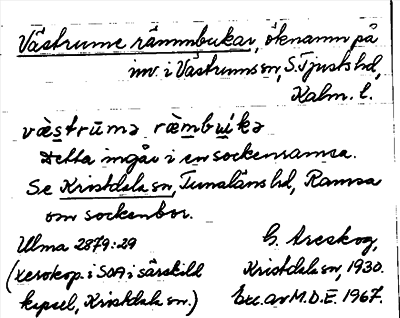 Västrume rämmbukar, öknamn på
inv. i Västrums sn, S. Tjusts hd,
Kalm. l.
væstrūmə ræmbukə
Detta ingår i en sockenramsa.
Se Kristdala sn, Tunaläns hd, Ramsa
om sockenbor.
Ulma 2879:29
(xerokop. i SOA i särskild
kapsel, Kristdala sn.)
G. Areskog,
Kristdala sn, 1930.
Exc. av M.D.E. 1967.